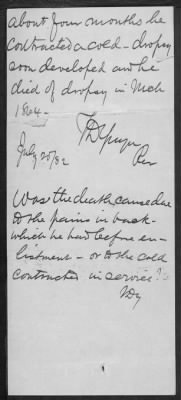 about four months he
contracted a cold - dropsy
soon developed and he
died of dropsy in Mch
1864 -
July 20/82
Rev
Was the death cause due
to the pains in back -
which he had before en-
listment - or to the cold
contracted in service?